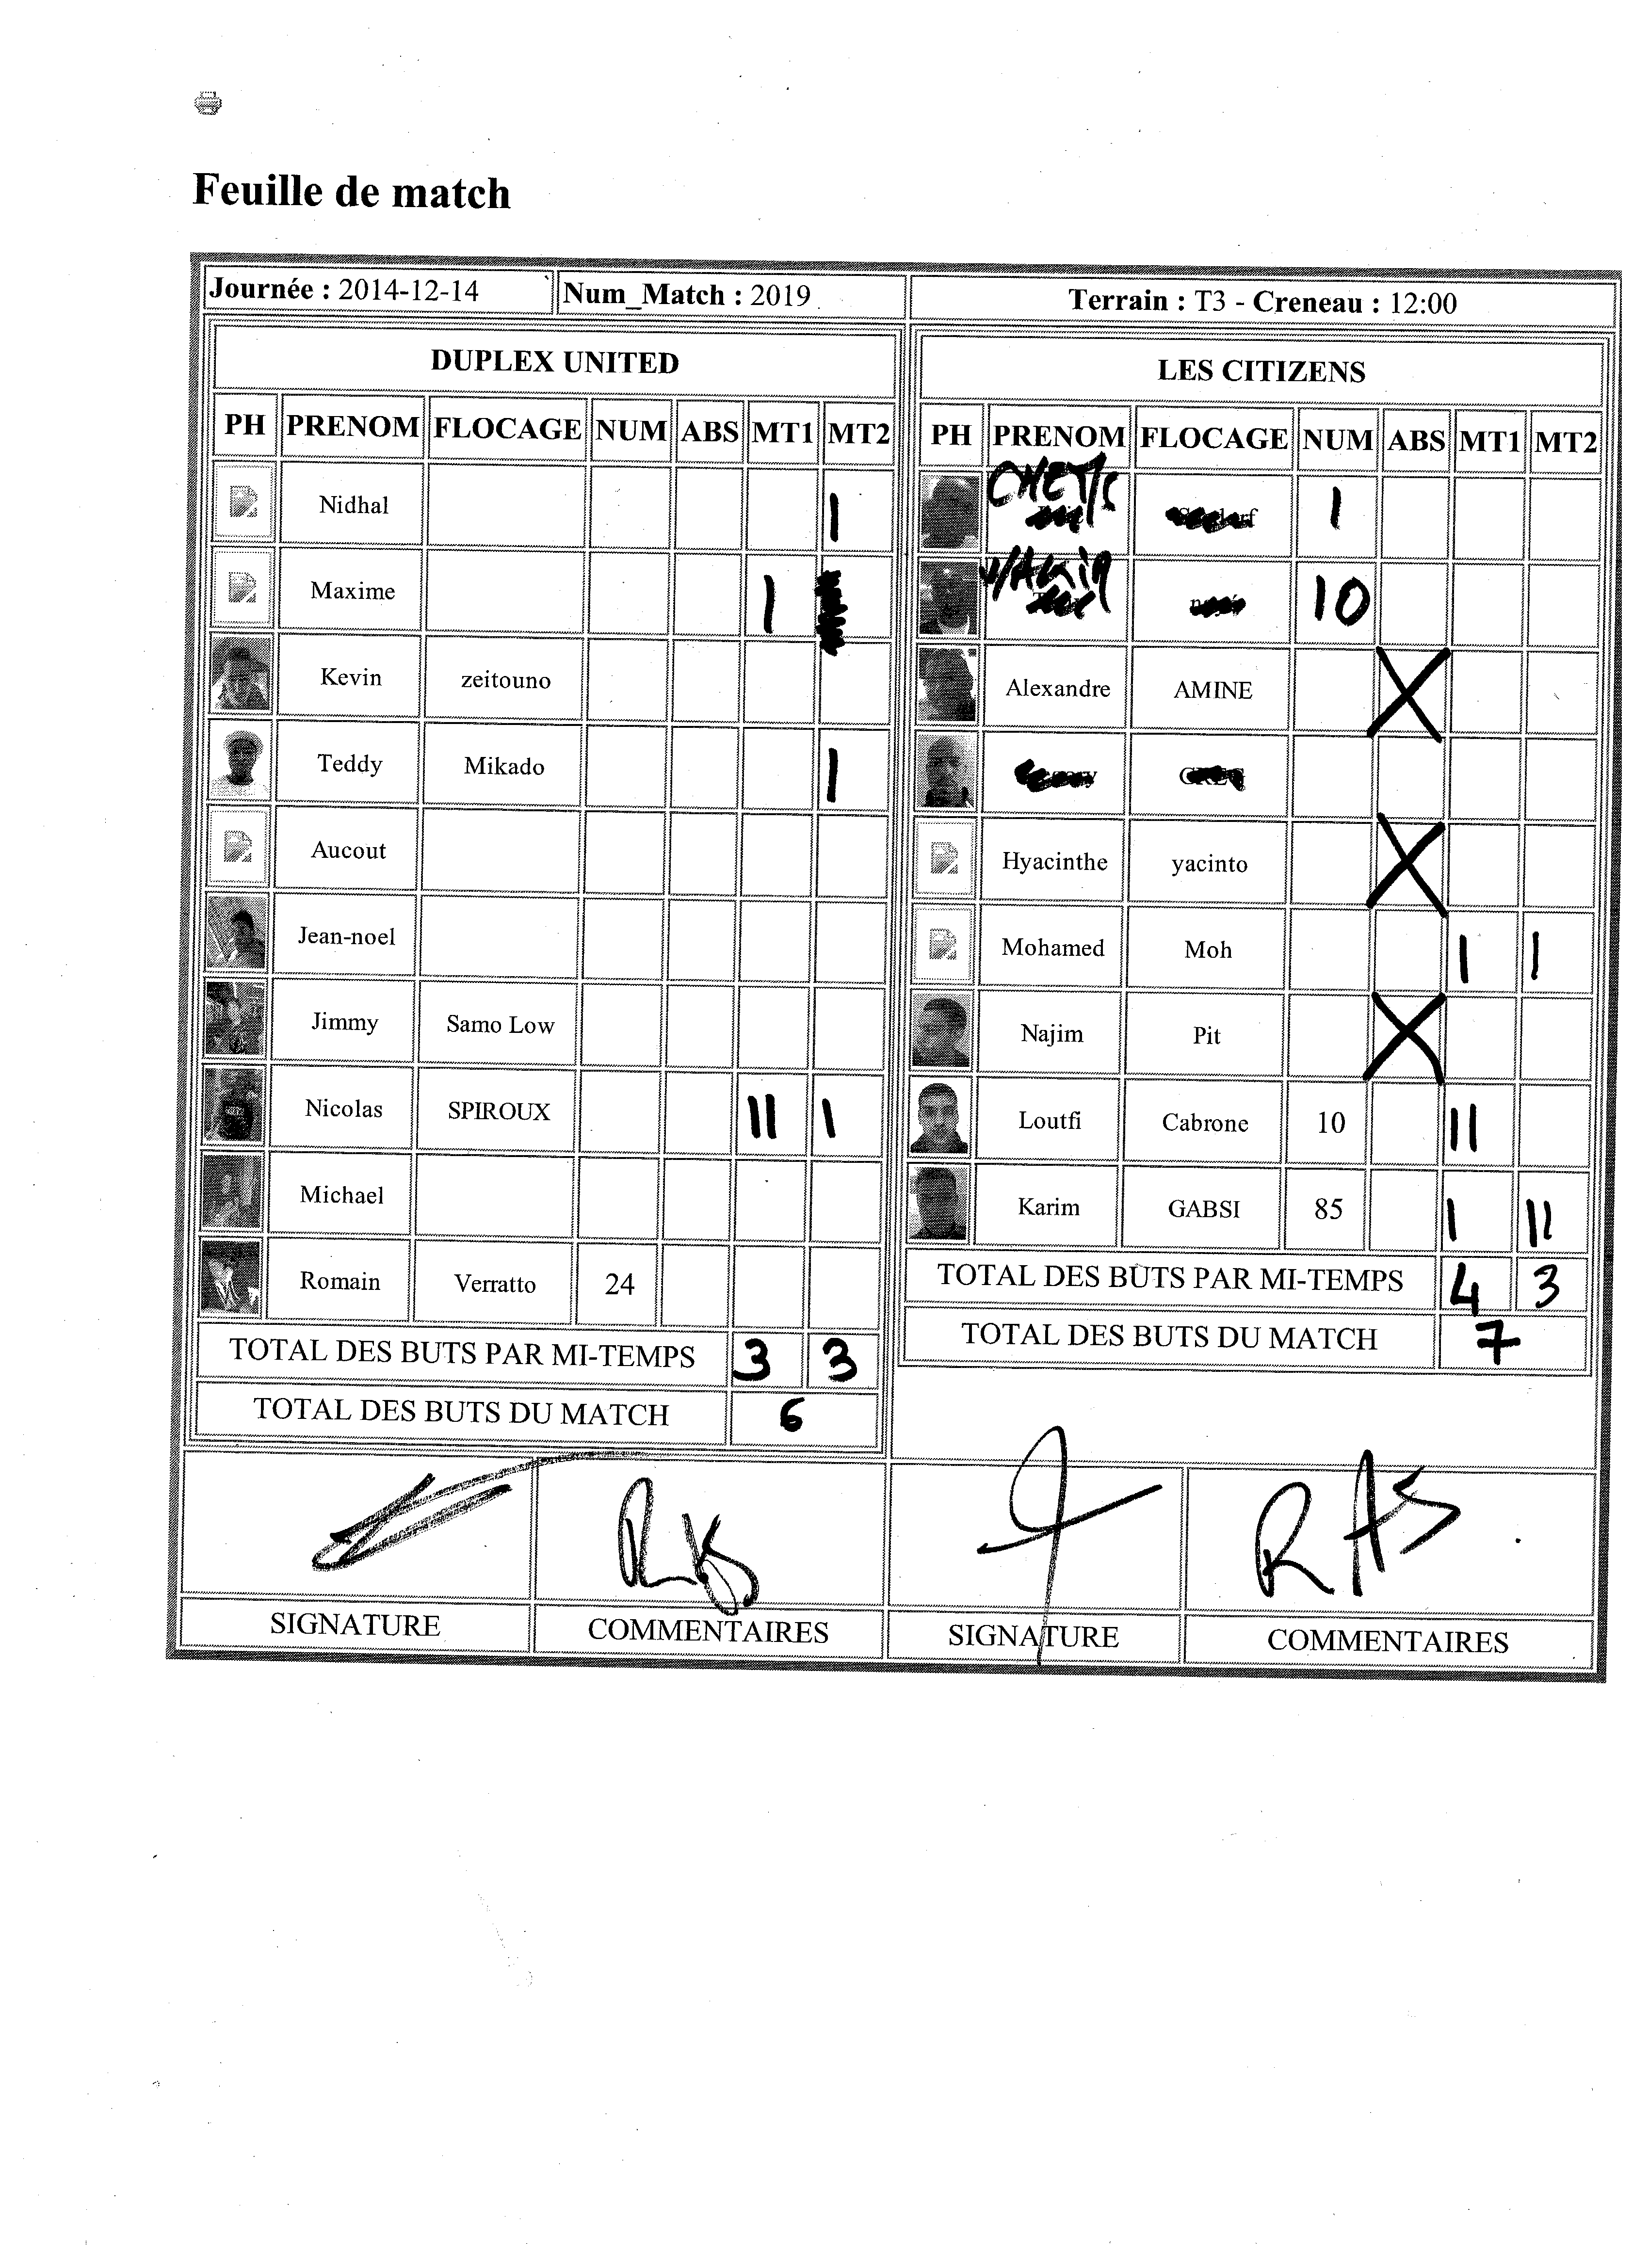 Feuille de match
Journée : 2014-12-14 Num_Match : 2019 Terrain : T3 - Creneau : 12:00
DUPLEX UNITED
PH PRENOM FLOCAGE NUM ABS MT1 MT2
Nidhal 1
Maxime 1
Kevin zeitouno
Teddy Mikado 1
Aucout
Jean-noel
Jimmy Samo Low
Nicolas SPIROUX 11 1
Michael
Romain Verratto 24
TOTAL DES BUTS PAR MI-TEMPS 3 3
TOTAL DES BUTS DU MATCH 6
SIGNATURE COMMENTAIRES
LES CITIZENS
PH PRENOM FLOCAGE NUM ABS MT1 MT2
1
10
Alexandre AMINE X
Hyacinthe yacinto X
Mohamed Moh 1 1
Najim Pit X
Loutfi Cabrone 10 11
Karim GABSI 85 1 11
TOTAL DES BUTS PAR MI-TEMPS 4 3
TOTAL DES BUTS DU MATCH 7
RAS.
SIGNATURE COMMENTAIRES